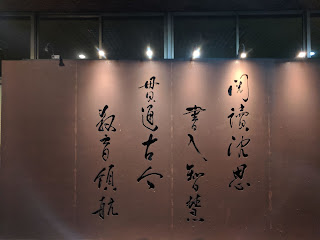 閱讀沈思
書入智慧
貫通古今
教育領航